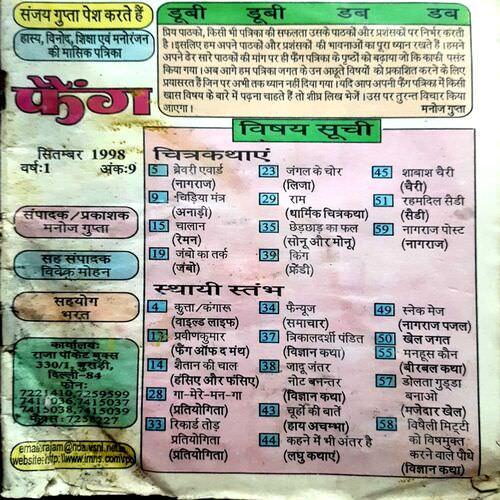 संजय गुप्ता पेश करते हैं
हास्य, विनोद, शिक्षा एवं मनोरंजन
की मासिक पत्रिका
फैंग
सितम्बर 1998
वर्ष:1 अंक:9
संपादक/प्रकाशक
मनोज गुप्ता
सह संपादक
विवेक मोहन
सहयोग
भरत
कार्यालय
राजा पॉकेट बुक्स
330/1, बुराड़ी,
दिल्ली-84
फोन:
डूबी डूबी डब डब
प्रिय पाठको, किसी भी पत्रिका की सफलता उसके पाठकों और प्रशंसकों पर निर्भर करती
है। इसलिए हम अपने पाठकों और प्रशंसकों की भावनाओं का पूरा ध्यान रखते हैं। हमने
अपने ढेर सारे पाठकों की मांग पर ही फैंग पत्रिका के पृष्ठों को बढ़ाया जो कि काफी पसंद
किया गया। अब आगे हम पत्रिका जगत के उन अछूते विषयों को प्रकाशित करने के लिए
प्रयासरत हैं जिन पर अभी तक ध्यान नहीं दिया गया। यदि आप अपनी फैंग पत्रिका में किसी
खास विषय के बारे में पढ़ना चाहते हैं तो शीघ्र लिख भेजें। उस पर तुरन्त विचार किया
जाएगा। मनोज गुप्ता
विषय सूची
चित्रकथाएं
5 ब्रेवरी एवार्ड
(नागराज)
9 चिड़िया मंत्र
(अनाड़ी)
15 चालान
(रेमन)
19 जंबो का तर्क
(जंबो)
23 जंगल के चोर
(लिजा)
29 राम
(धार्मिक चित्रकथा)
35 छेड़छाड़ का फल
(सोनू और मोनू)
39 किंग
(फ्रेंडी)
45 शाबाश चैरी
(चैरी)
51 रहमदिल सैडी
(सैडी)
59 नागराज पोस्ट
(नागराज)
स्थायी स्तंभ
4 कुत्ता/कंगारू
(वाइल्ड लाइफ)
13 प्रवीणकुमार
(फैंग ऑफ द मंथ)
14 शैतान की चाल
(हंसिए और फंसिए)
28 गा-मेरे-मन-गा
(प्रतियोगिता)
33 रिकार्ड तोड़
प्रतियोगिता
(प्रतियोगिता)
34 फैन्यूज
(समाचार)
37 त्रिकालदर्शी पंडित
(विज्ञान कथा)
38 जादू जंतर
नोट बनन्तर
(विज्ञान कथा)
43 चूहों की बातें
(हाय अचम्भा)
44 कहने में भी अंतर है
(लघु कथाएं)
49 स्नेक मेज
(नागराज पजल)
50 खेल जगत
55 मनहूस कौन
(बीरबल कथा)
57 डोलता गुड्डा
बनाओ
(मजेदार खेल)
58 विषैली मिट्टी
को विषमुक्त
करने वाले पौधे
(विज्ञान कथा)